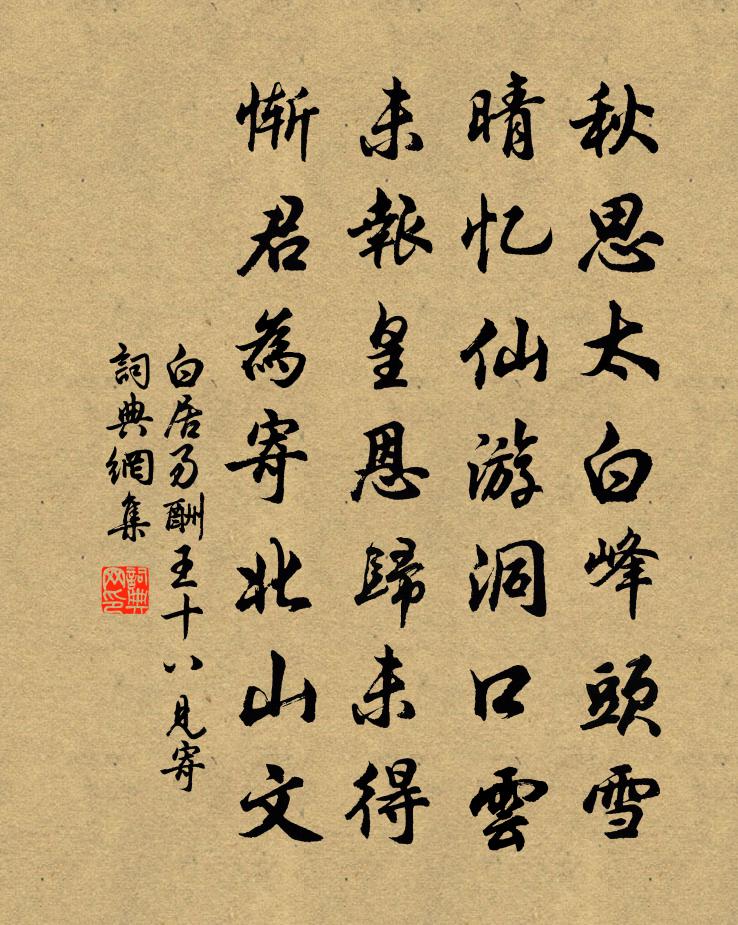 秋思太白峰頭雪
晴忆仙游洞口雲
未報皇恩歸未得
慚君為寄北山文
白居易酬王十八見寄
詞典網集
詞典網印